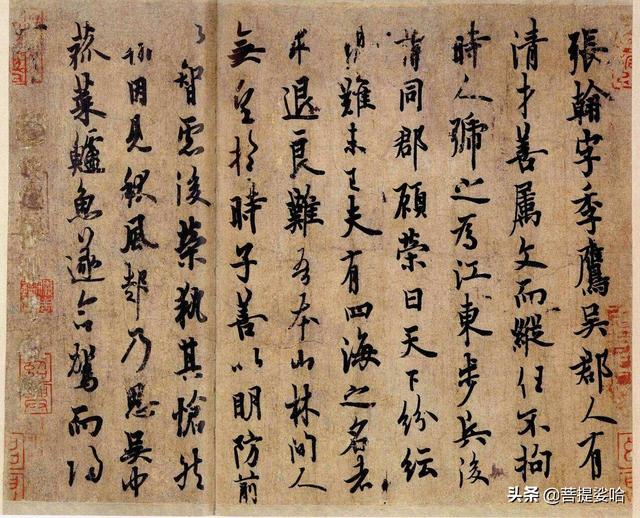 張翰字季鷹吳郡人有
清才善屬文而縱任不拘
時人號之為江東步兵後
謂同郡顧榮曰天下紛紜
禍難未已夫有四海之名者
求退良難吾本山林間人
無望於時子善以明防前
以智慮後榮執其愴然
翰因見秋風起乃思吳中
菰菜鱸魚遂命駕而歸
头条 @菩提娑哈